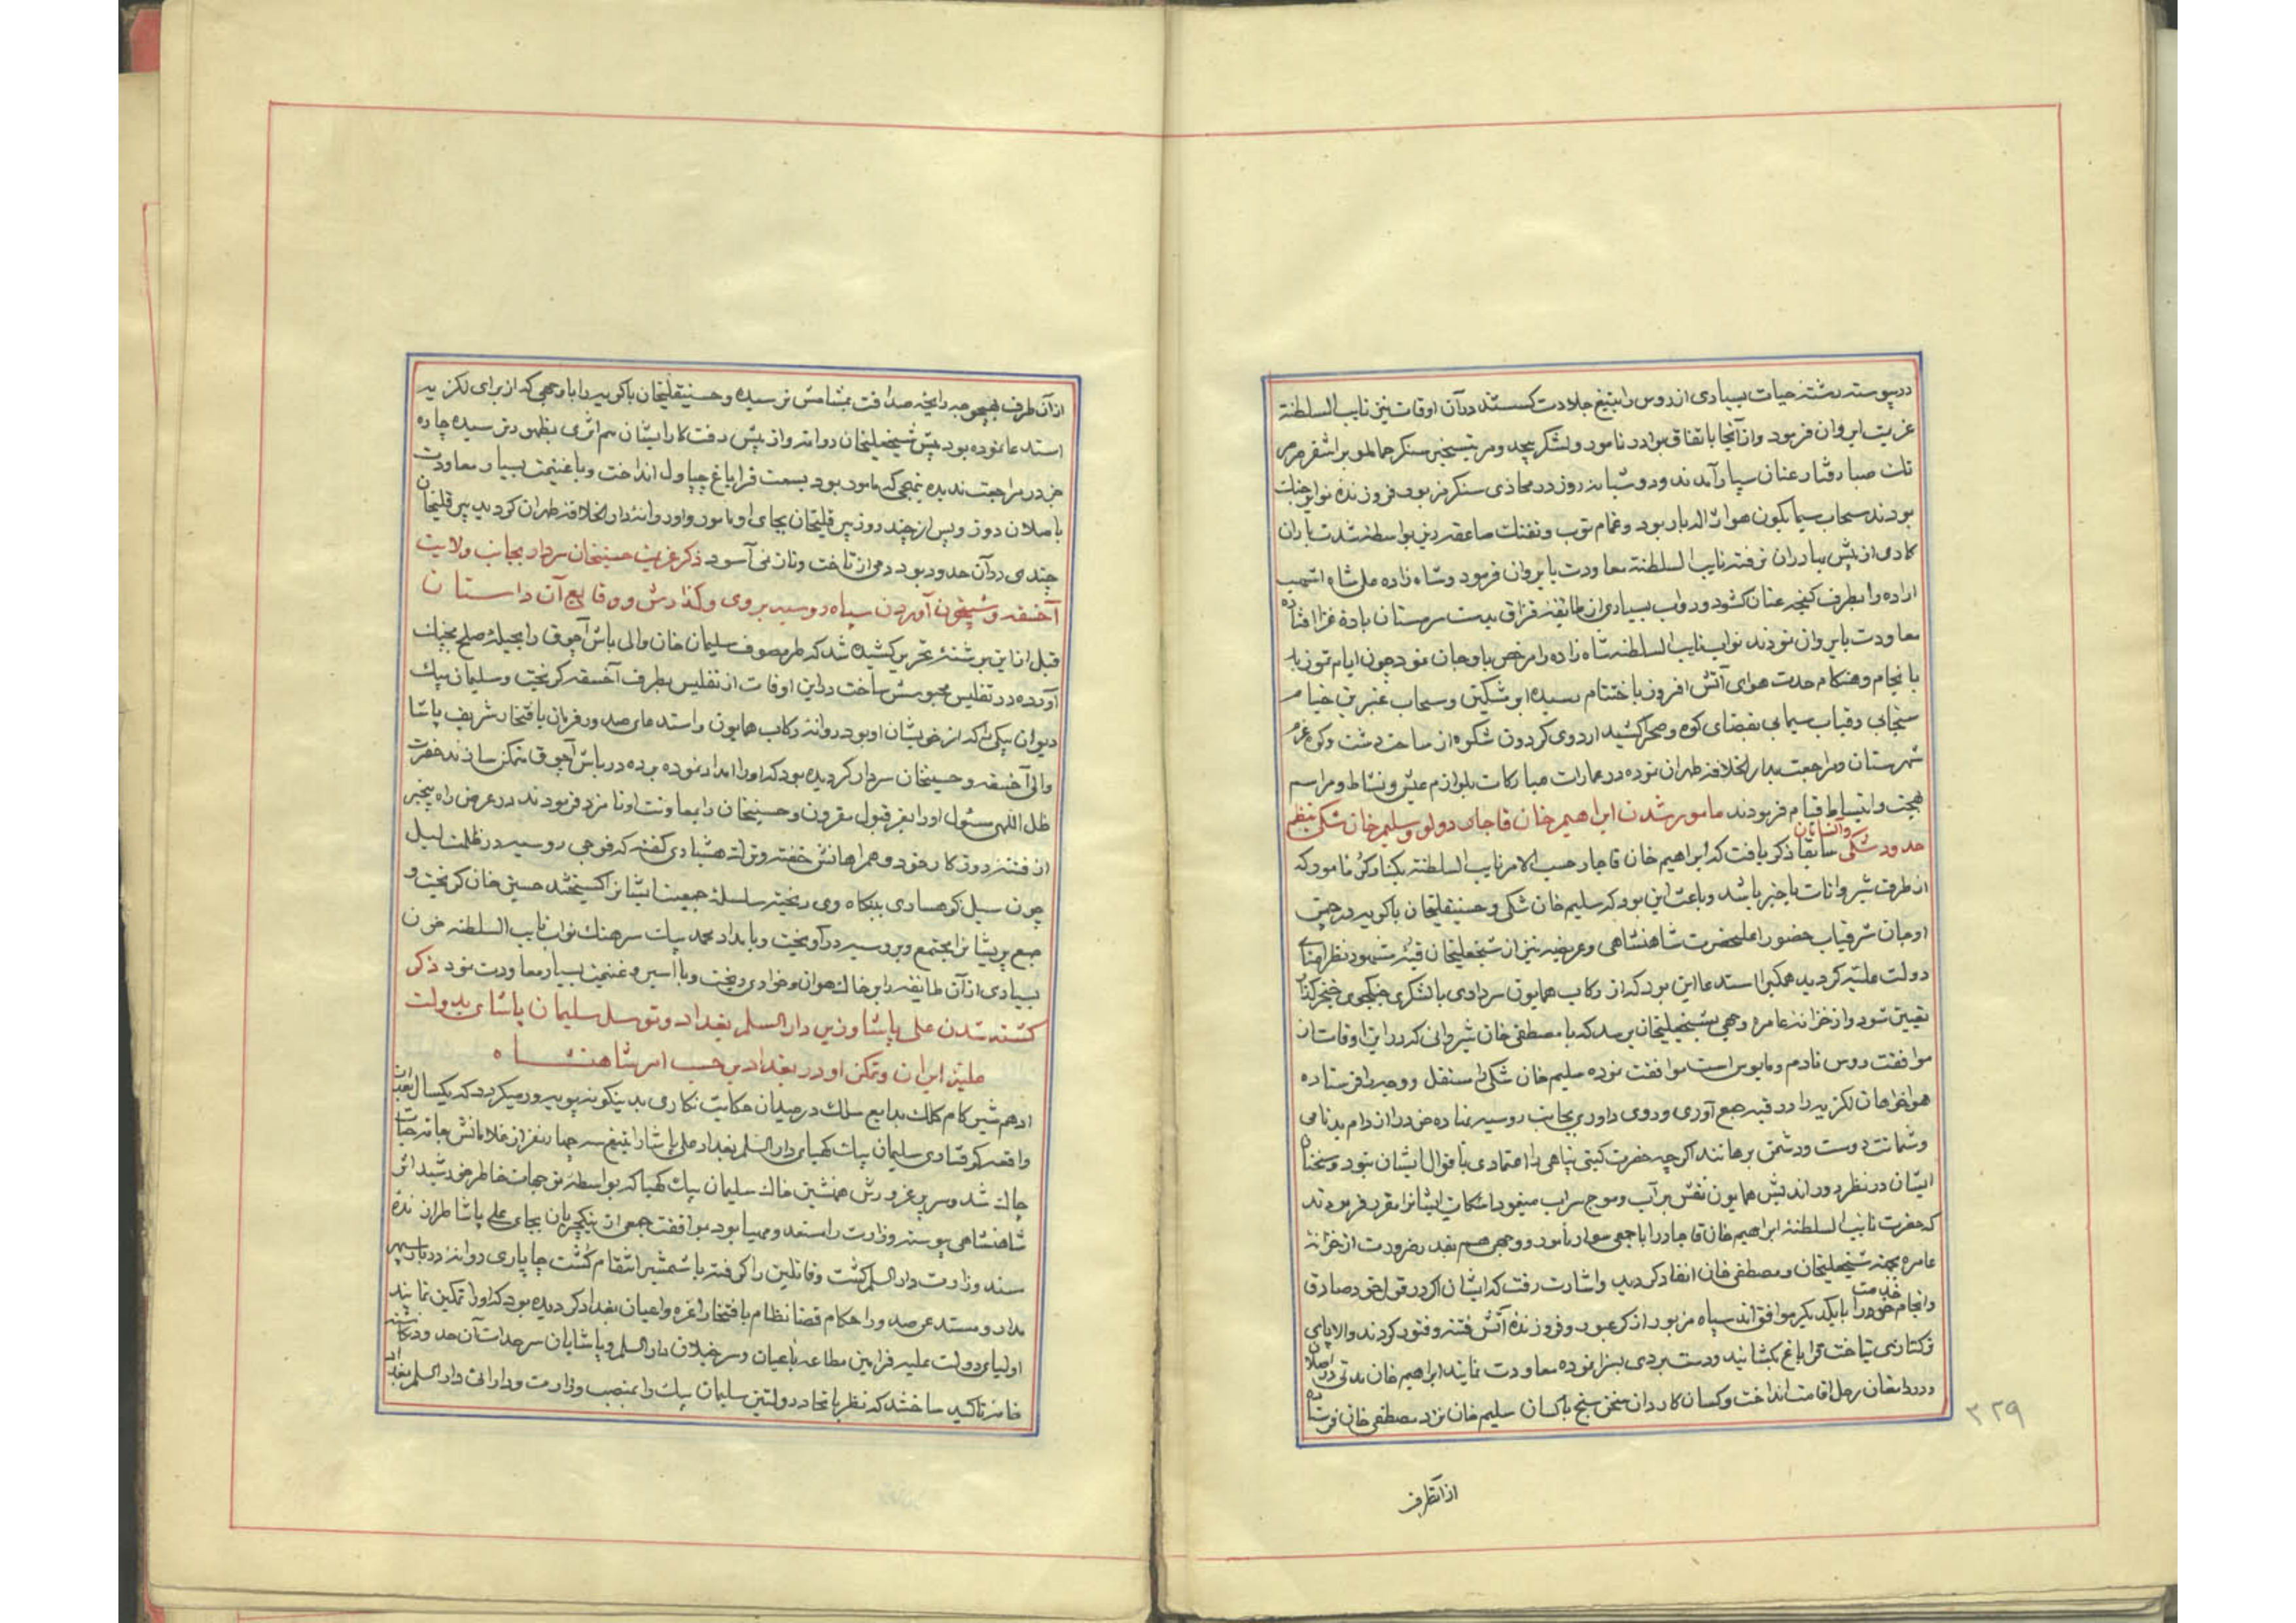 در پیوسته رشتهٔ حیات بسیاری از روس را بتیغ جلادت کسستند در آن اوقات نیز نایب السلطنة
عزیت ایروان فرمود و از آنجا باتفاق برادر نامور و لشکر بیحد و مر بتسخیر سنکر حمالمو بر اشقر
تك صبا رفتار عنان سپار آمدند و دو شبانه روز در محاذی سنکر مزبور فروزندهٔ نوایر جنك
بودند سحاب سیمابکون هوا ژاله بار بود و غمام توب و تفنك صاعقه ریز بواسطهٔ شدت باران
کاری از پیش بهادران نرفته نایب السلطنة معاودت بایروان فرمود و شاه زاده علی شاه اشهب
اراده را بطرف کنجه عنان کشود و دواب بسیاری از طایفهٔ قزاق بدست سرمستان بادهٔ غزا افتاده
معاودت بایروان نمودند نواب نایب السلطنه شاه زاده را مرخص باوجان نمود چون ایام تموز
بانجام و هنکام حدت هوای آتش افروز باختتام رسیده ابر مشکین و سحاب عنبرین خیام
سنجابی و قباب سیمابی بفضای کوه و صحرا کشید اردوی کردون شکوه از ساحت دشت و کوه عزم
شهرستان و مراجعت بدار الخلافهٔ طهران نموده در عمارات مبارکات بلوازم عیش و نشاط و مراسم
بهجت و انبساط قیام فرمودند مامور شدن ابراهیم خان قاجار دولو و سلیم خان شکی بنظم
حدود شکی و آنسامان سابقا ذکر یافت که ابراهیم خان قاجار حسب الامر نایب السلطنه بکنار کر مامور که
از طرف شیروانات باخبر باشد و باعث این بود که سلیم خان شکی و حسینقلیخان باکویه در چمن
اوجان شرفیاب حضور اعلیحضرت شاهنشاهی و عریضه نیز از شیخعلیخان قبه مشهود نظر امنای
دولت علیه کردید همکی را استدعا این بود که از رکاب همایون سرداری با لشکری جنکجوی خنجرکذار
تعیین شود و از خزانه عامره وجهی بشیخعلیخان برسد که با مصطفی خان شیروانی که در این اوقات از
موافقت روس نادم و مایوس است موافقت نموده سلیم خان شکی را مستقل و وجه را فرستاده
هواخواهان لکزیه را در قبه جمع آوری و روی داوری بجانب روسیه نهاده خود را از دام بدنامی
و شماتت دوست و دشمن برهانند اکرچه حضرت کیتی پناهی را اعتمادی باقوال ایشان نبود و سخنان
ایشان در نظر دور اندیش همایون نقش بر آب و موج سراب مینمود اما شکایت ایشانرا مقرر فرمودند
که حضرت نایب السلطنة ابراهیم خان قاجار را با جمعی سوار مامور و وجهی هم بقدر ضرورت از خزانهٔ
عامره بجهة شیخعلیخان و مصطفی خان انفاد کردید و اشارت رفت که ایشان اکر در قول خود صادق
و انجام خدمت خود را با یکدیکر موافق اند سپاه مزبور از کر عبور و فروزندهٔ آتش فتنه و فتور کردند و الا پای
ترکتازی بتاخت قراباغ بکشانید و دست بردی بسزا نموده معاودت نمایند ابراهیم خان مدتی در اصلا
ندوز رحل اقامت انداخت و کسان کاردان سخن سنج با کسان سلیم خان نزد مصطفی خان فرستاده
ازانطرف
۳۲۹
از آن طرف بهیچوجه رایحهٔ صداقت بمشامش نرسیده و حسینقلیخان باکویه را با وجهی که از برای لکزیه
استدعا نموده بود پیش شیخعلیخان روانه و از پیش رفت کار ایشان هم اثری بظهور نرسیده چاره
جز در مراجعت ندیده بنهجی که مامور بود بسمت قراباغ چپاول انداخت و با غنیمت بسیار معاودت
باصلان دوز و پس از چند روز پیرقلیخان بجای او مامور و او روانهٔ دار الخلافهٔ طهران کردید پیرقلیخان
چندی در آن حدود بود و دمی از تاخت و تاز نمی آسود ذکر عزیمت حسینخان سردار بجانب ولایت
آخسقه و شبیخون آوردن سپاه روسیه بروی و کذارش و وقایع آن داستان
قبل از این برشتهٔ تحریر کشیده شد که طرمصوف سلیمان خان والی باش آچوق را بحیلهٔ صلح بچنك
آورده در تفلیس محبوسش ساخت در این اوقات از تفلیس بطرف آخسقه کریخت و سلیمان بیك
دیوان بیکی را که از خویشان او بود روانهٔ رکاب همایون و استدعای صدور فرمان بافتخار شریف پاشا
والی آخسقه و حسینخان سردار کردیده بود که او را امداد نموده برده در باش آچوق متمکن سازند حضرت
ظل اللهی مسئول او را بعز قبول مقرون و حسینخان را بمعاونت او نامزد فرمودند در عرض راه بیخبر
از فتنهٔ روزکار خود و همراهانش خفته و ترك هشیاری کفته که فوجی روسیه در ظلمت لیل
چون سیل کوهساری ببنکاه وی ریخته سلسلهٔ جمعیت ایشانرا کسیختند حسین خان کریخت و
جمع پریشانرا مجتمع و بروسیه در آویخت و بامداد محمد بیك سرهنك نواب نایب السلطنه خون
بسیاری از آن طایفه را بر خاك هوان و خواری ریخت و با اسیر و غنیمت بسیار معاودت نمود ذکر
کشته شدن علی پاشا وزیر دار السلم بغداد و توسل سلیمان پاشا بدولت
علیهٔ ایران و تمکن او در بغداد بر حسب امر شاهنشاه
ادهم شیرین کام کلك بدایع سلك در میدان حکایت نکاری بدینکونه پویه ور میکردد که یکسال بعد از
واقعهٔ کرفتاری سلیمان بیك کهیای دار السلم بغداد علی پاشا را بتیغ سه چهار نفر از غلامانش جامهٔ حیات
چاك شد و سر پر غرورش همنشین خاك سلیمان بیك کهیا که بواسطهٔ توجهات خاطر خورشید اثر
شاهنشاهی پیوسته وزارت را مستعد و مهیا بود بموافقت جمعی از ینکچریان بجای علی پاشا طرازندهٔ
مسند وزارت دار السلم کشت و قاتلین را کرفته با شمشیر انتقام کشت چاپاری روانهٔ دربار سپهر
مدار و مستدعی صدور احکام قضا نظام بافتخار اعزه و اعیان بغداد کردیده بود که او را تمکین نمایند
اولیای دولت علیه فرامین مطاعه باعیان و سرخیلان دار السلم و پاشایان سرحدات آن حدود نکاشته
خامهٔ تاکید ساختند که نظر باتحاد دولتین سلیمان بیك را بمنصب وزارت و دارائی دار السلم بغداد